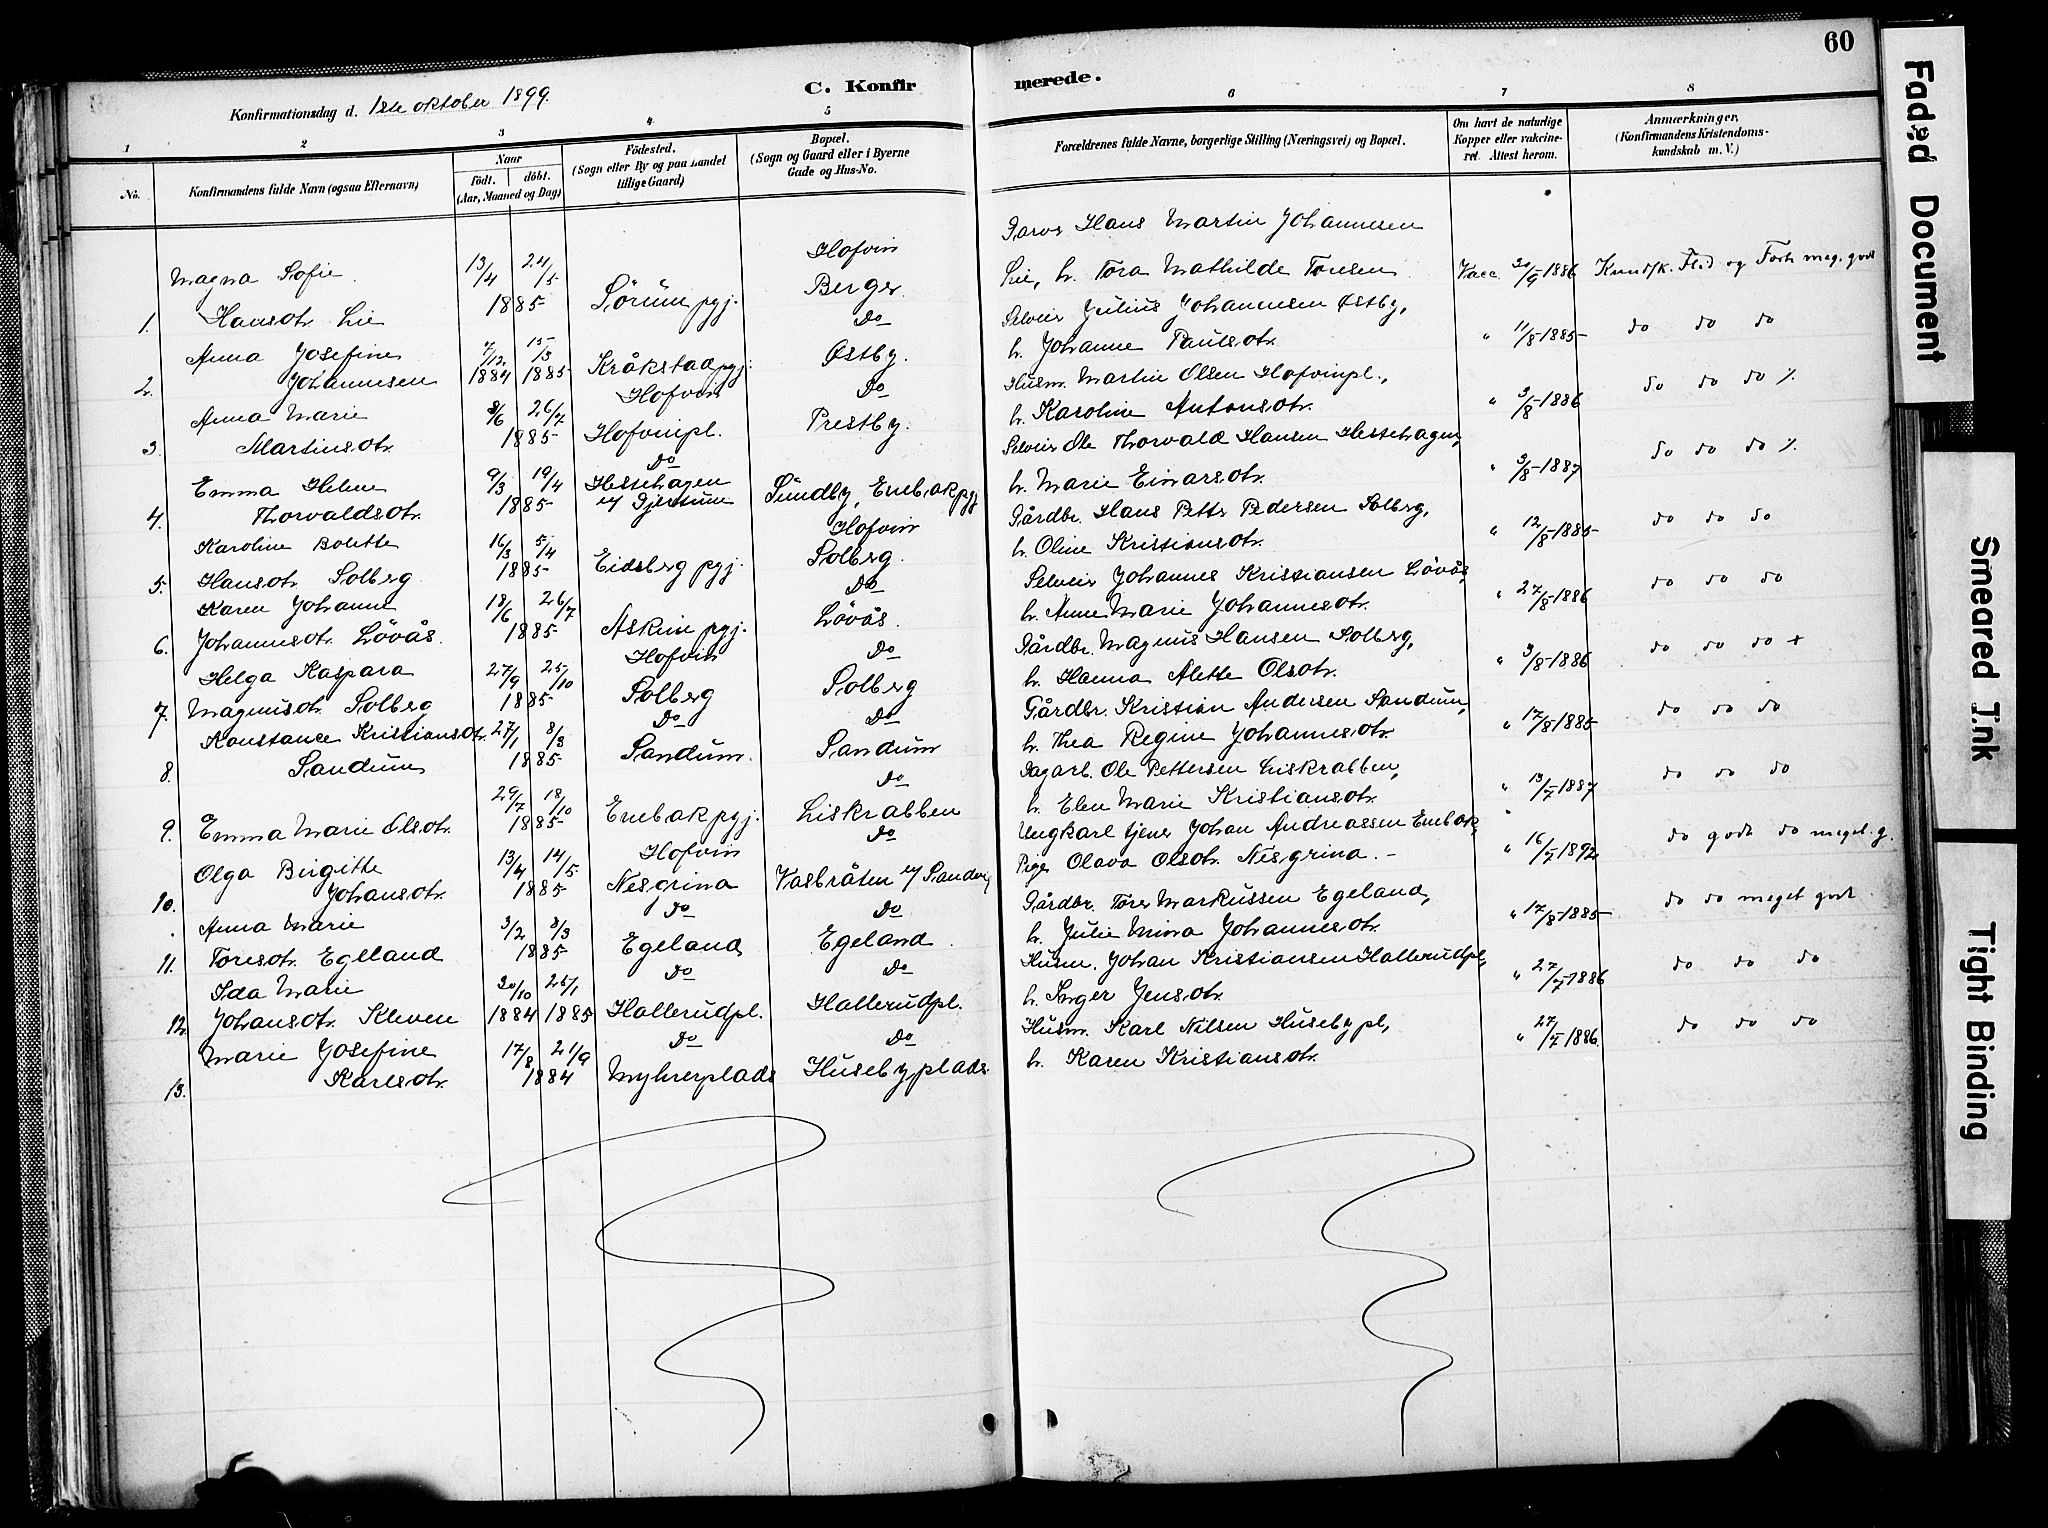 60
C. Konfirmerede.
Konfirmationsdag d. 1ste oktober 1899.
1
2
3
4
5
6
7
8
No.
Konfirmandens fulde Navn (ogsaa Efternavn)
Naar
født. døbt.
(Aar, Maaned og Dag)
Fødested.
(Sogn eller By og paa Landet
tillige Gaard)
Bopæl.
(Sogn og Gaard eller i Byerne
Gade og Hus-No.
Forældrenes fulde Navne, borgerlige Stilling (Næringsvei) og Bopæl.
Om havt de naturlige
Kopper eller vakcine-
ret. Attest herom.
Anmærkninger,
(Konfirmandens Kristendoms-
kundskab m. V.)
1. Magna Sofie Hansdtr. Lie
13/4 24/5 1885
Sørum pgj.
Hofvin Berger
Hans Martin Johannesen
Lie, h. Tora Mathilde Toresen
Vacc. 20/9-1886
Kundsk. Flid og Forh. meg. godt
2. Anna Josefine Johannesen
7/12 1884 15/3 1885
Kråkstad pgj.
Do Østby.
Selveier Julius Johannesen Østby,
h. Johanne Paulsdtr.
" 11/8-1885
do do do
3. Anna Marie Martinsdtr.
8/6 26/7 1885
Hofvin Hofvinpl.
Do Prestby.
Husm. Martin Olsen Hofvinpl.,
h. Karoline Antonsdtr.
" 3/8-1886
do do do %.
4. Emma Helene Thorvaldsdtr.
9/3 19/4 1885
Do Hestehagen u/ Gjestum
Sundby, Enebak pgj
Selveier Ole Thorvald Hansen Hestehagen,
h. Marie Einarsdtr.
" 3/8-1887
do do do %.
5. Karoline Bolette Hansdtr. Solberg
16/3 5/4 1885
Eidsberg pgj.
Hofvin Solberg.
Gårdbr. Hans Petter Pedersen Solberg,
h. Oline Kristiansdtr.
" 12/8-1885
do do do
6. Karen Johanne Johannesdtr. Løvås.
18/6 26/7 1885
Askim pgj.
Do Løvås.
Selveier Johannes Kristiansen Løvås,
h. Anne Marie Johannesdtr.
" 27/8-1886
do do do
7. Helga Kaspara Magnusdtr. Solberg
27/9 25/10 1885
Hofvin Solberg
Do Solberg
Gårdbr. Magnus Hansen Solberg,
h. Hanna Alette Olsdtr.
" 3/8-1886
do do do +
8. Konstance Kristiansdtr. Sandum
27/1 8/3 1885
Do Sandum.
Do Sandum
Gårdbr. Kristian Andersen Sandum,
h. Thea Regine Johannesdtr.
" 17/8-1885
do do do
9. Emma Marie Olsdtr.
29/7 18/10 1885
Enebak pgj.
Do Liskrabben
Dagarb. Ole Pettersen Liskrabben,
h. Elen Marie Kristiansdtr.
" 13/7-1887
do do do
10. Olga Birgitte Johansdtr.
13/4 14/5 1885
Hofvin Nesgrina
Do Vasbråten u/ Sander
Ungkarl tjener Johan Andreassen Enebak,
Pige Olava Olsdtr. Nesgrina. -
" 16/7-1892
do godt do meget g.
11. Anna Marie Toresdtr. Egeland
3/2 8/3 1885
Do Egeland
Do Egeland
Gårdbr. Tore Markussen Egeland,
h. Julie Mina Johannesdtr.
" 17/8-1885
do do meget godt
12. Ida Marie Johansdtr. Kleven
20/10 1884 25/1 1885
Do Hallerudpl.
Do Hallerudpl.
Husm. Johan Kristiansen Hallerudpl,
h. Inger Jensdtr.
" 27/7-1886
do do do
13. Marie Josefine Karlsdtr.
17/8 21/9 1884
Do Myhrerplads
Do Husebyplads
Husm. Karl Nilsen Husebypl,
h. Karen Kristiansdtr.
" 27/7-1886.
do do do
Faded Document
Smeared Ink
Tight Binding